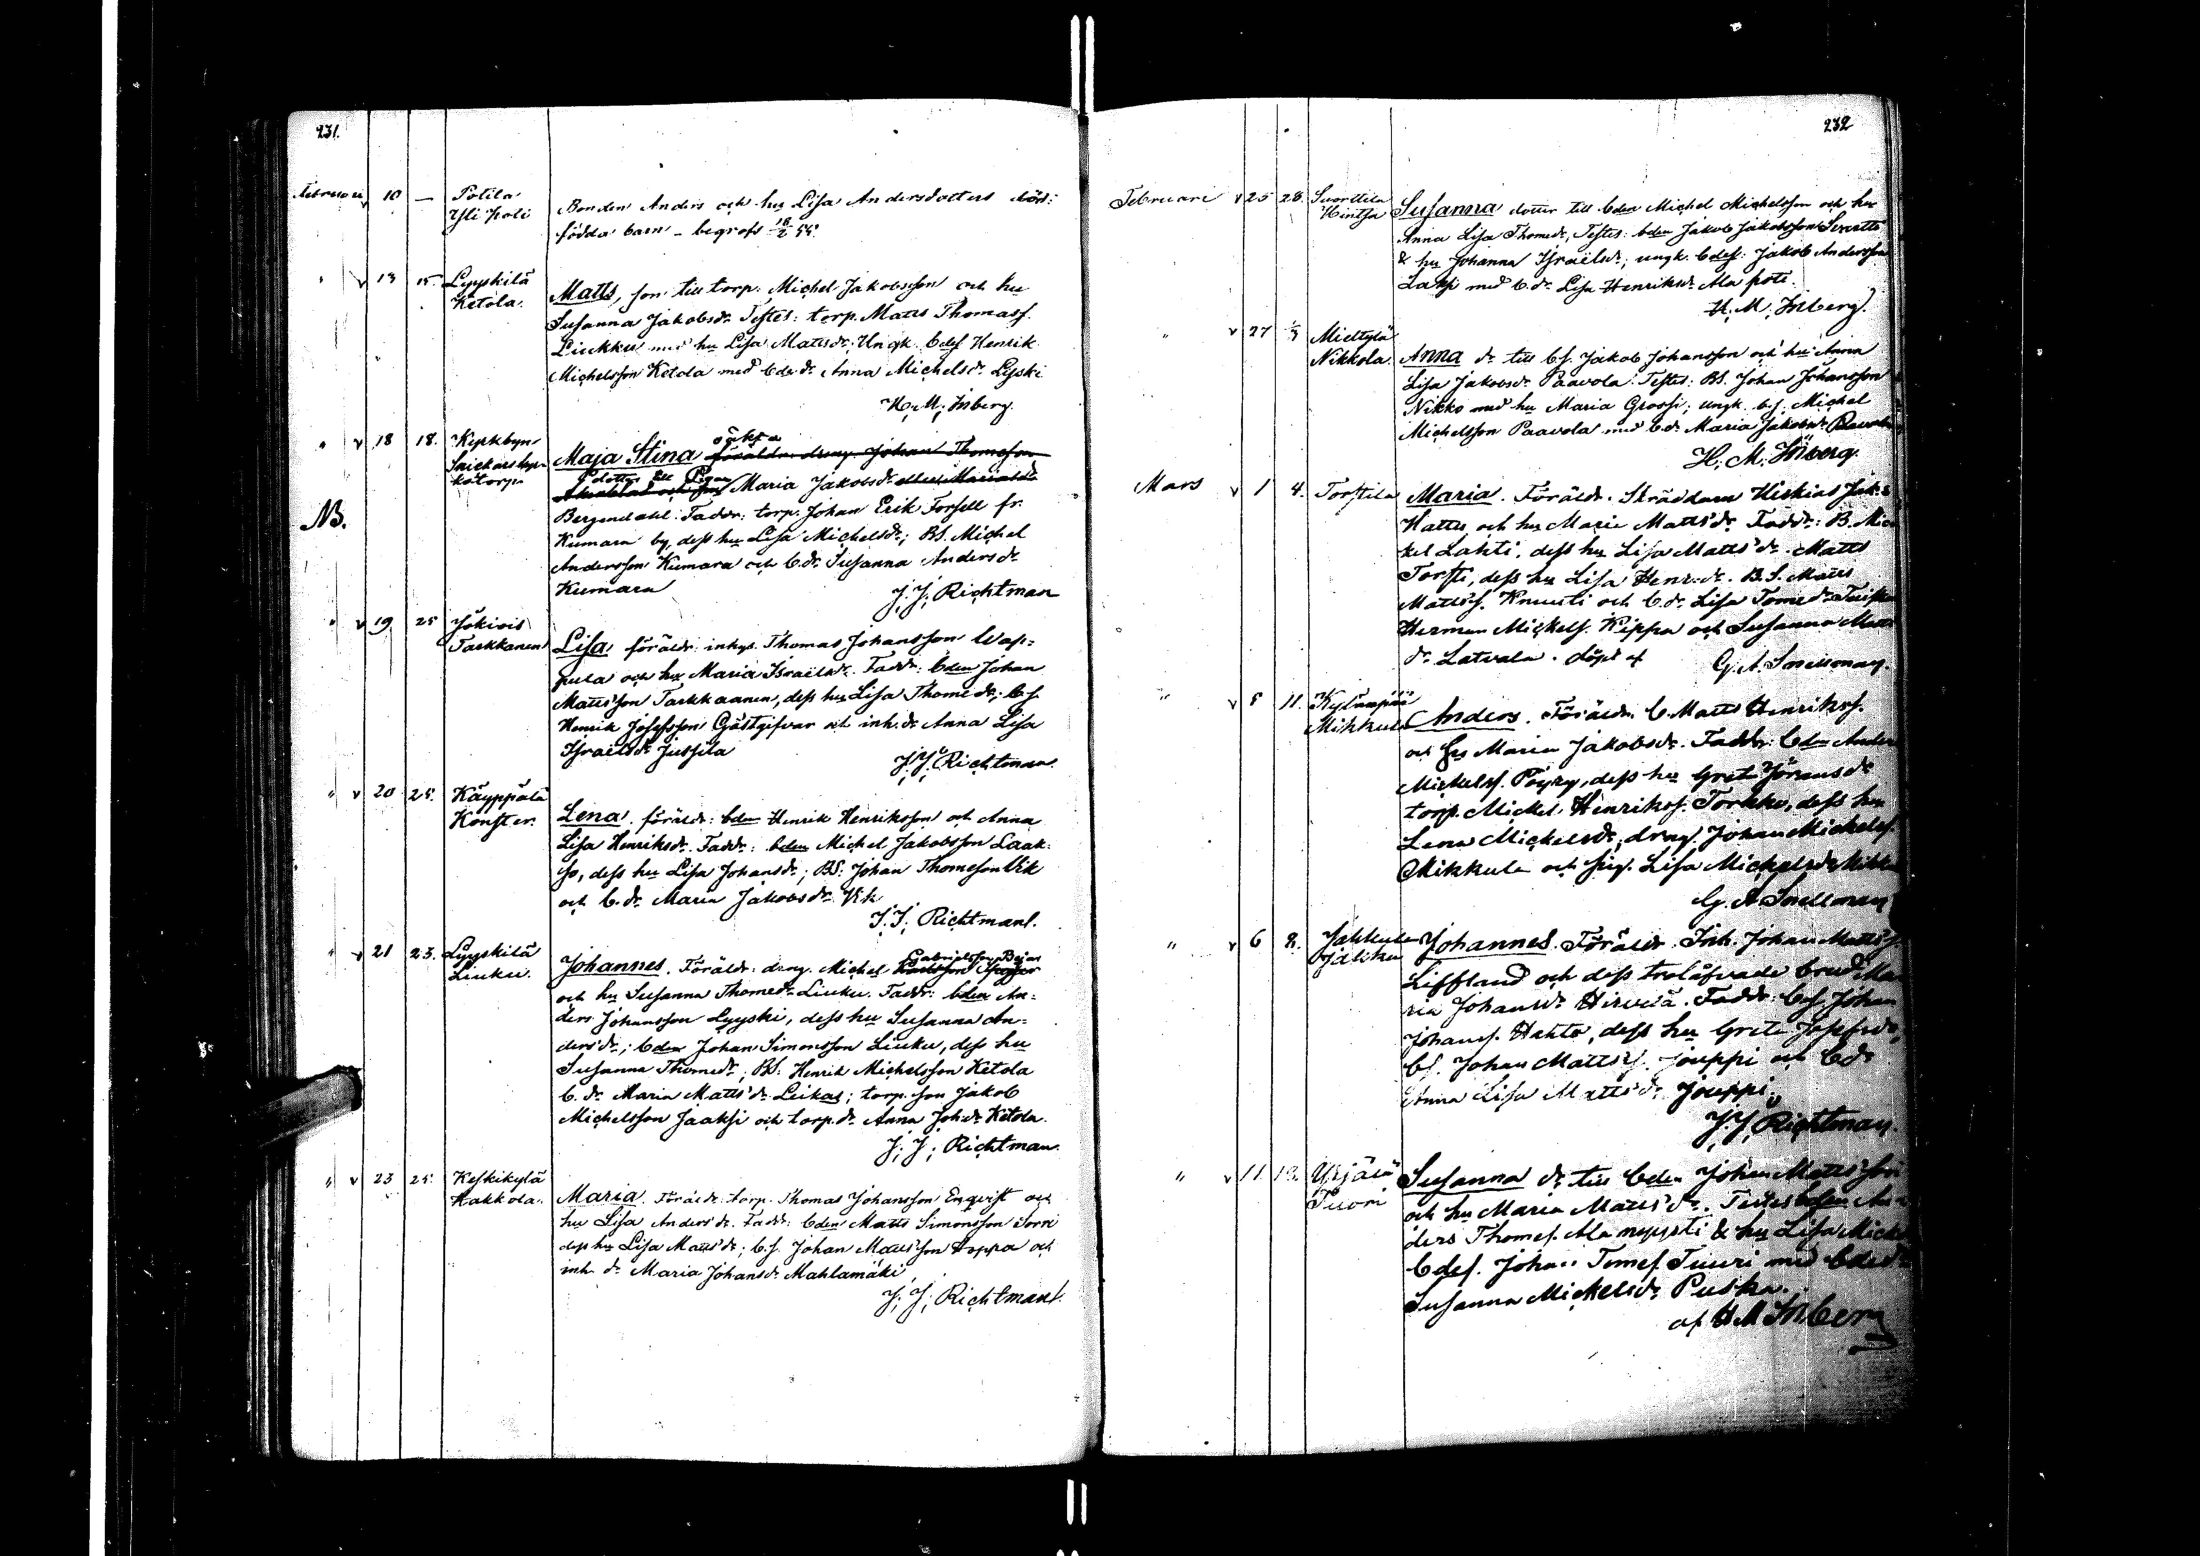 231.
Februari 10 — Potila Bonden Anders och hu Lisa Andersdotters död:
Yli poti födda barn – begrofs 18/2 55.
" v 13 15. Lyyskilä Matts, son till torp: Michel Jakobsson och hu
Ketola. Susanna Jakobsdr Testes: torp. Matts Thomass.
Liukku med hu Lisa Mattsdr; Ungk. bdes Henrik
Michelsson Ketola med bdedr Anna Michelsdr Lyski
H. M. Inberg.
" v 18 18. Kyrkbyn Maja Stina oäkta
föräldr: dreng. Johan Thomeson
dotter till Pigan Maria Jakobsdr
Bergendahl. Faddr: torp. Johan Erik Forsell fr.
NB.
Kumara by, dess hu Lisa Michelsdr; BS. Michel
Andersson Kumara och b.dr Susanna Andersdr
Kumara
J. J. Richtman
" v 19 25 Jokiois
Tarkkanen Lisa föräldr: inhys. Thomas Johansson Wap=
och hu Maria Israelsdr. Faddr: bden Johan
Mattsson Tarkkaanen, dess hu Lisa Thomedr; bs.
Henrik Josefsson Gästgifvar och inh.dr Anna Lisa
Israelsdr Jussila
J. J. Richtman.
" v 20 25. Käyppälä
Konster. Lena, föräldr: bden Henrik Henriksson och Anna
Lisa Henriksdr. Faddr: bden Michel Jakobsson Laak:
so, dess hu Lisa Johansdr; BS: Johan Thomesson Vik
och b.dr Maria Jakobsdr Vik
J. J. Richtman.
" v 21 23. Lyyskilä
Liuku. Johannes. Föräldr: dreng. Michel Gabrielsson
och hu Susanna Thomedr Liuku. Faddr: bden An=
ders Johansson Lyyski, dess hu Susanna An=
dersdr; bden Johan Simonsson Liuku, dess hu
Susanna Thomedr; BS: Henrik Michelsson Ketola
b.dr Maria Mattsdr Leikas; torp.son Jakob
Michelsson Jaaksi och torp.dr Anna Joh.dr Ketola.
J. J. Richtman.
" v 23 25. Keskikylä
Kakkola. Maria. Föräldr: torp. Thomas Johansson Enqvist och
hu Lisa Andersdr. Faddr: bden Matts Simonsson Sorri
dess hu Lisa Mattsdr; b.s. Johan Mattsson Hoppa och
inh. dr Maria Johansdr Mahlamäki
J. J. Richtman.
232
Februari v 25 28. Suorttila
Hintsa Susanna dotter till bden Michel Michelsson och hu
Anna Lisa Thomedr, Testes: bden Jakob Jakobsson Suortti
& hu Johanna Israelsdr; ungk. bdes: Jakob Andersson
Laksi med b.dr Lisa Henriksdr Ala poti.
H. M. Inberg.
" v 27 1/3 Mieltylä
Nikkola. Anna dr till bs. Jakob Johansson och hu Anna
Lisa Jakobsdr Paavola. Testes: BS. Johan Johansson
Nikko med hu Maria Grossi; ungk. bs. Michel
Michelsson Paavola med b.dr Maria Jakobsdr Paavola
H. M. Inberg.
Mars v 1 4. Torstila Maria. Föräldr. Skräddarn Hiskias Jak:s
Hattu och hu Maria Mattsdr. Faddr: B. Mic
kel Lahti, dess hu Lisa Mattsdr. Matts
Torsti, dess hu Lisa Henr:dr. B.S. Matts
Mattss. Knuuti och b.dr Lisa Tomedr
Herman Mickels. Kippa och Susanna Matts
dr Latvala. döpt af G. A. Snellman.
" v 5 11. Kylänpää
Mikkula Anders. Föräldr. b. Matts Henrikss.
och hu Maria Jakobsdr. Faddr: bden Anders
Mickelss. Pöyry, dess hu Greta Jöransdr
torp. Mickel Henrikss. Torkko, dess hu
Lena Mickelsdr; dreng. Johan Mickelss.
Mikkula och pig. Lisa Michelsdr Mikku
G. A. Snellman
" v 6 8. Jakkula Johannes. Föräldr. Inh. Johan Mattss.
Liffland och dess trolofvade brud Ma
ria Johansdr Hirveiä. Faddr: bs. Johan
Johanss. Hahto, dess hu Greta Josefsdr,
bs. Johan Mattss. Jouppi och b.dr
Anna Lisa Mattsdr Jouppi.
J. J. Richtman.
" v 11. 13. Yrjälä
Tuori Susanna dr till bden Johan Mattsson
och hu Maria Mattsdr. Testes bden An
ders Thomes. Ala nopysti & hu Lisa Mick
bdes. Johan Tomes Tuuri med bdedr
Susanna Mickelsdr Puska.
af H M Inberg